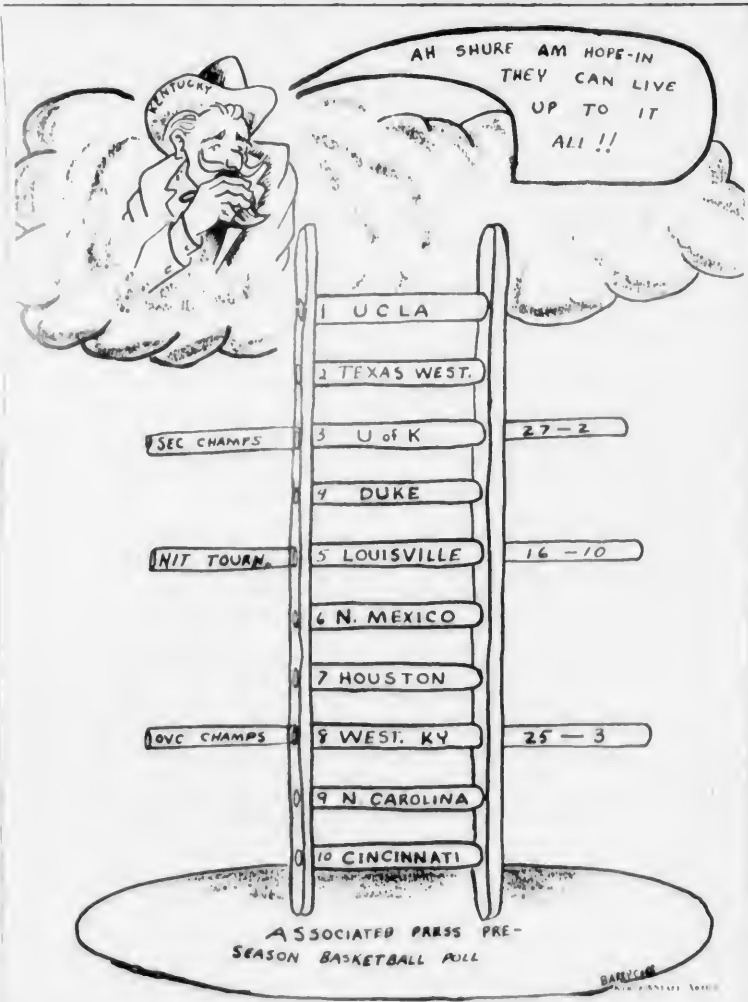 KENTUCKY
AH SHURE AM HOPE-IN
THEY CAN LIVE
UP TO IT
ALL !!
1 UCLA
2 TEXAS WEST.
SEC CHAMPS 3 U of K 27-2
4 DUKE
NIT TOURN. 5 LOUISVILLE 16-10
6 N. MEXICO
7 HOUSTON
OVC CHAMPS 8 WEST. KY 25-3
9 N. CAROLINA
10 CINCINNATI
ASSOCIATED PRESS PRE-
SEASON BASKETBALL POLL